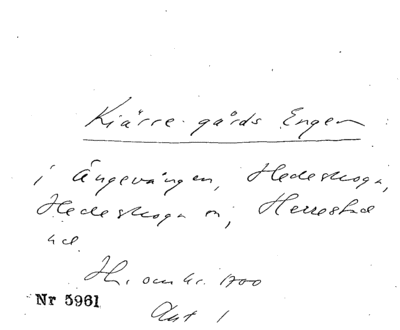 Kiärre-gårds Engen
i Ängevången, Hedeskoga,
Hedeskoga sn, Herrestad
hd.
Hr. omkr. 1700
Nr 5961
Akt 1